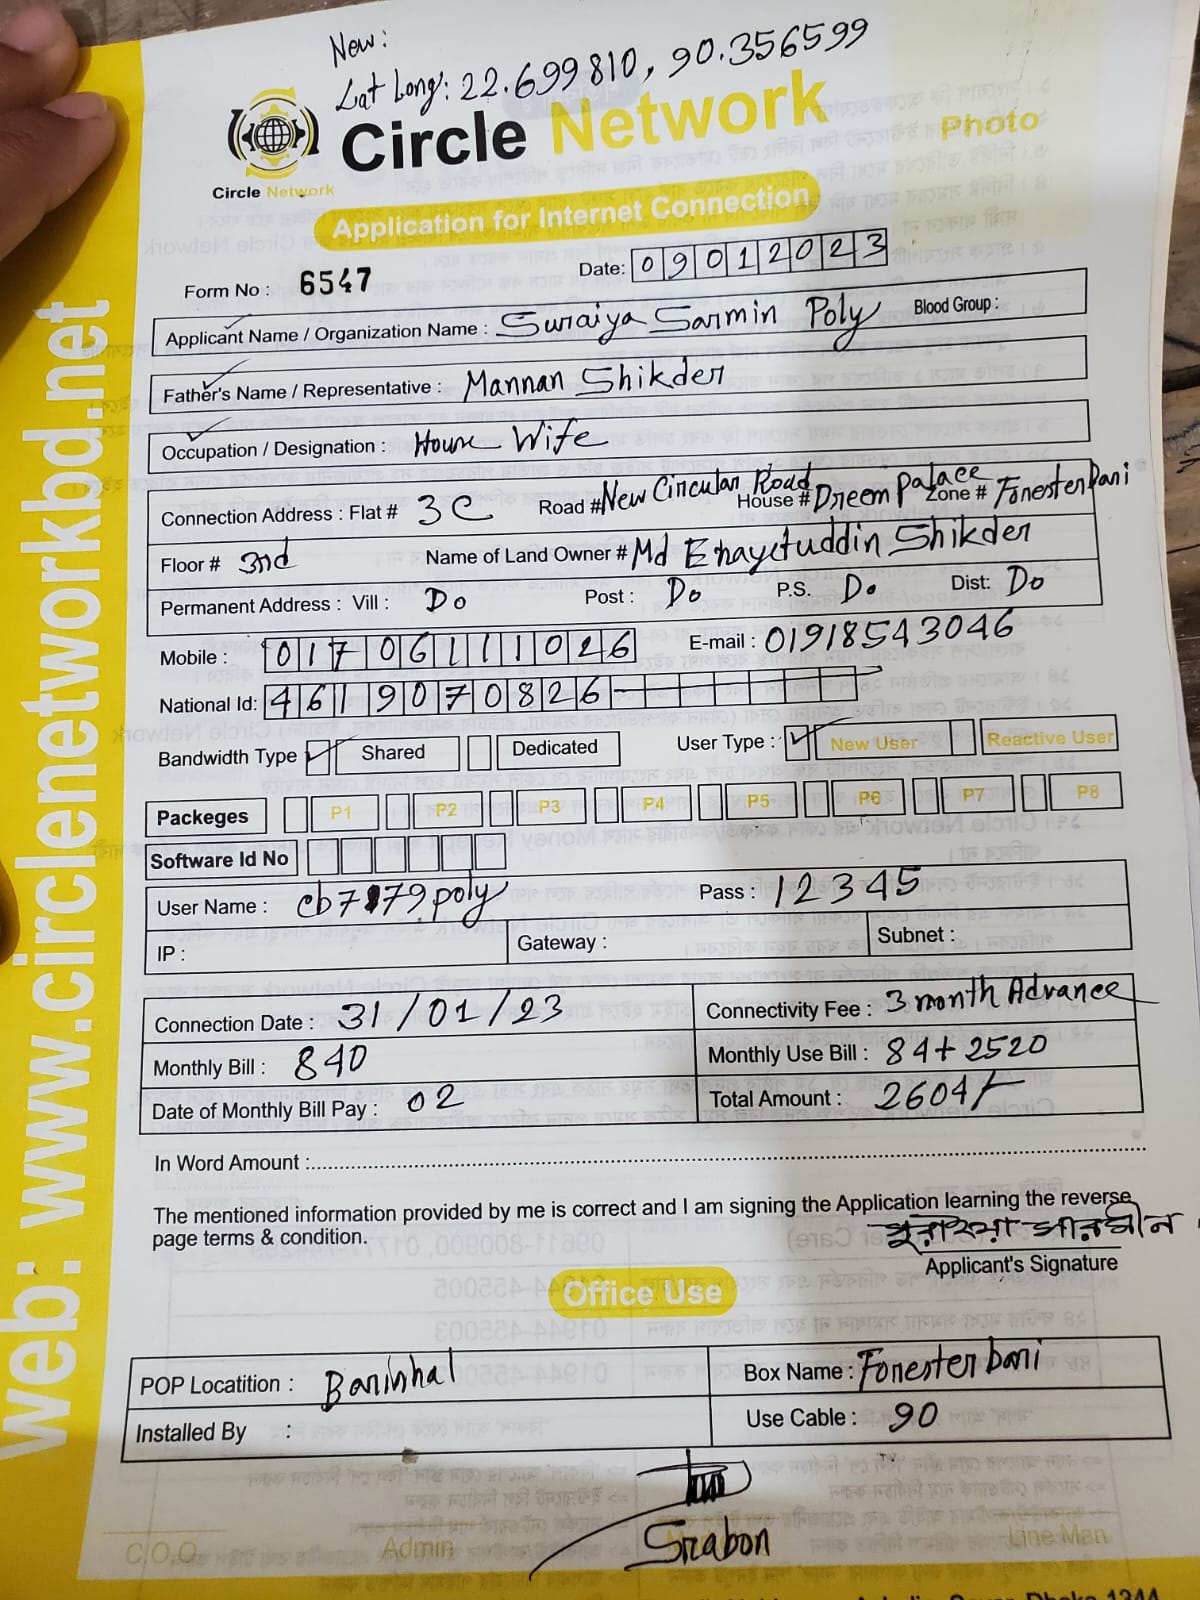 New:
Lat Long: 22.699810, 90.356599
Circle Network
Photo
Circle Network
Application for Internet Connection
Form No : 6547 Date: 09012023
Applicant Name / Organization Name : Suraiya Sarmin Poly Blood Group :
Father's Name / Representative : Mannan Shikder
Occupation / Designation : House Wife
Connection Address : Flat # 3C Road # New Circular Road House # Dreem Palace Zone # Foresterbari
Floor # 3rd Name of Land Owner # Md Enayetuddin Shikder
Permanent Address : Vill : Do Post : Do P.S. Do Dist: Do
Mobile : 01706111026 E-mail : 01918543046
National Id: 4619070826-
Bandwidth Type Shared Dedicated User Type : New User Reactive User
Packeges P1 P2 P3 P4 P5 P6 P7 P8
Software Id No
User Name : cb7179.poly Pass : 12345
IP : Gateway : Subnet :
Connection Date : 31/01/23 Connectivity Fee : 3 month Advance
Monthly Bill : 840 Monthly Use Bill : 84+2520
Date of Monthly Bill Pay : 02 Total Amount : 2604/-
In Word Amount :
The mentioned information provided by me is correct and I am signing the Application learning the reverse
page terms & condition.
সুরাইয়া সারমীন
Applicant's Signature
Office Use
POP Locatition : Barishal Box Name : Foresterbari
Installed By : Use Cable : 90
Srabon
C.O.O Admin Line Man
Dhaka 1344
web: www.circlenetworkbd.net